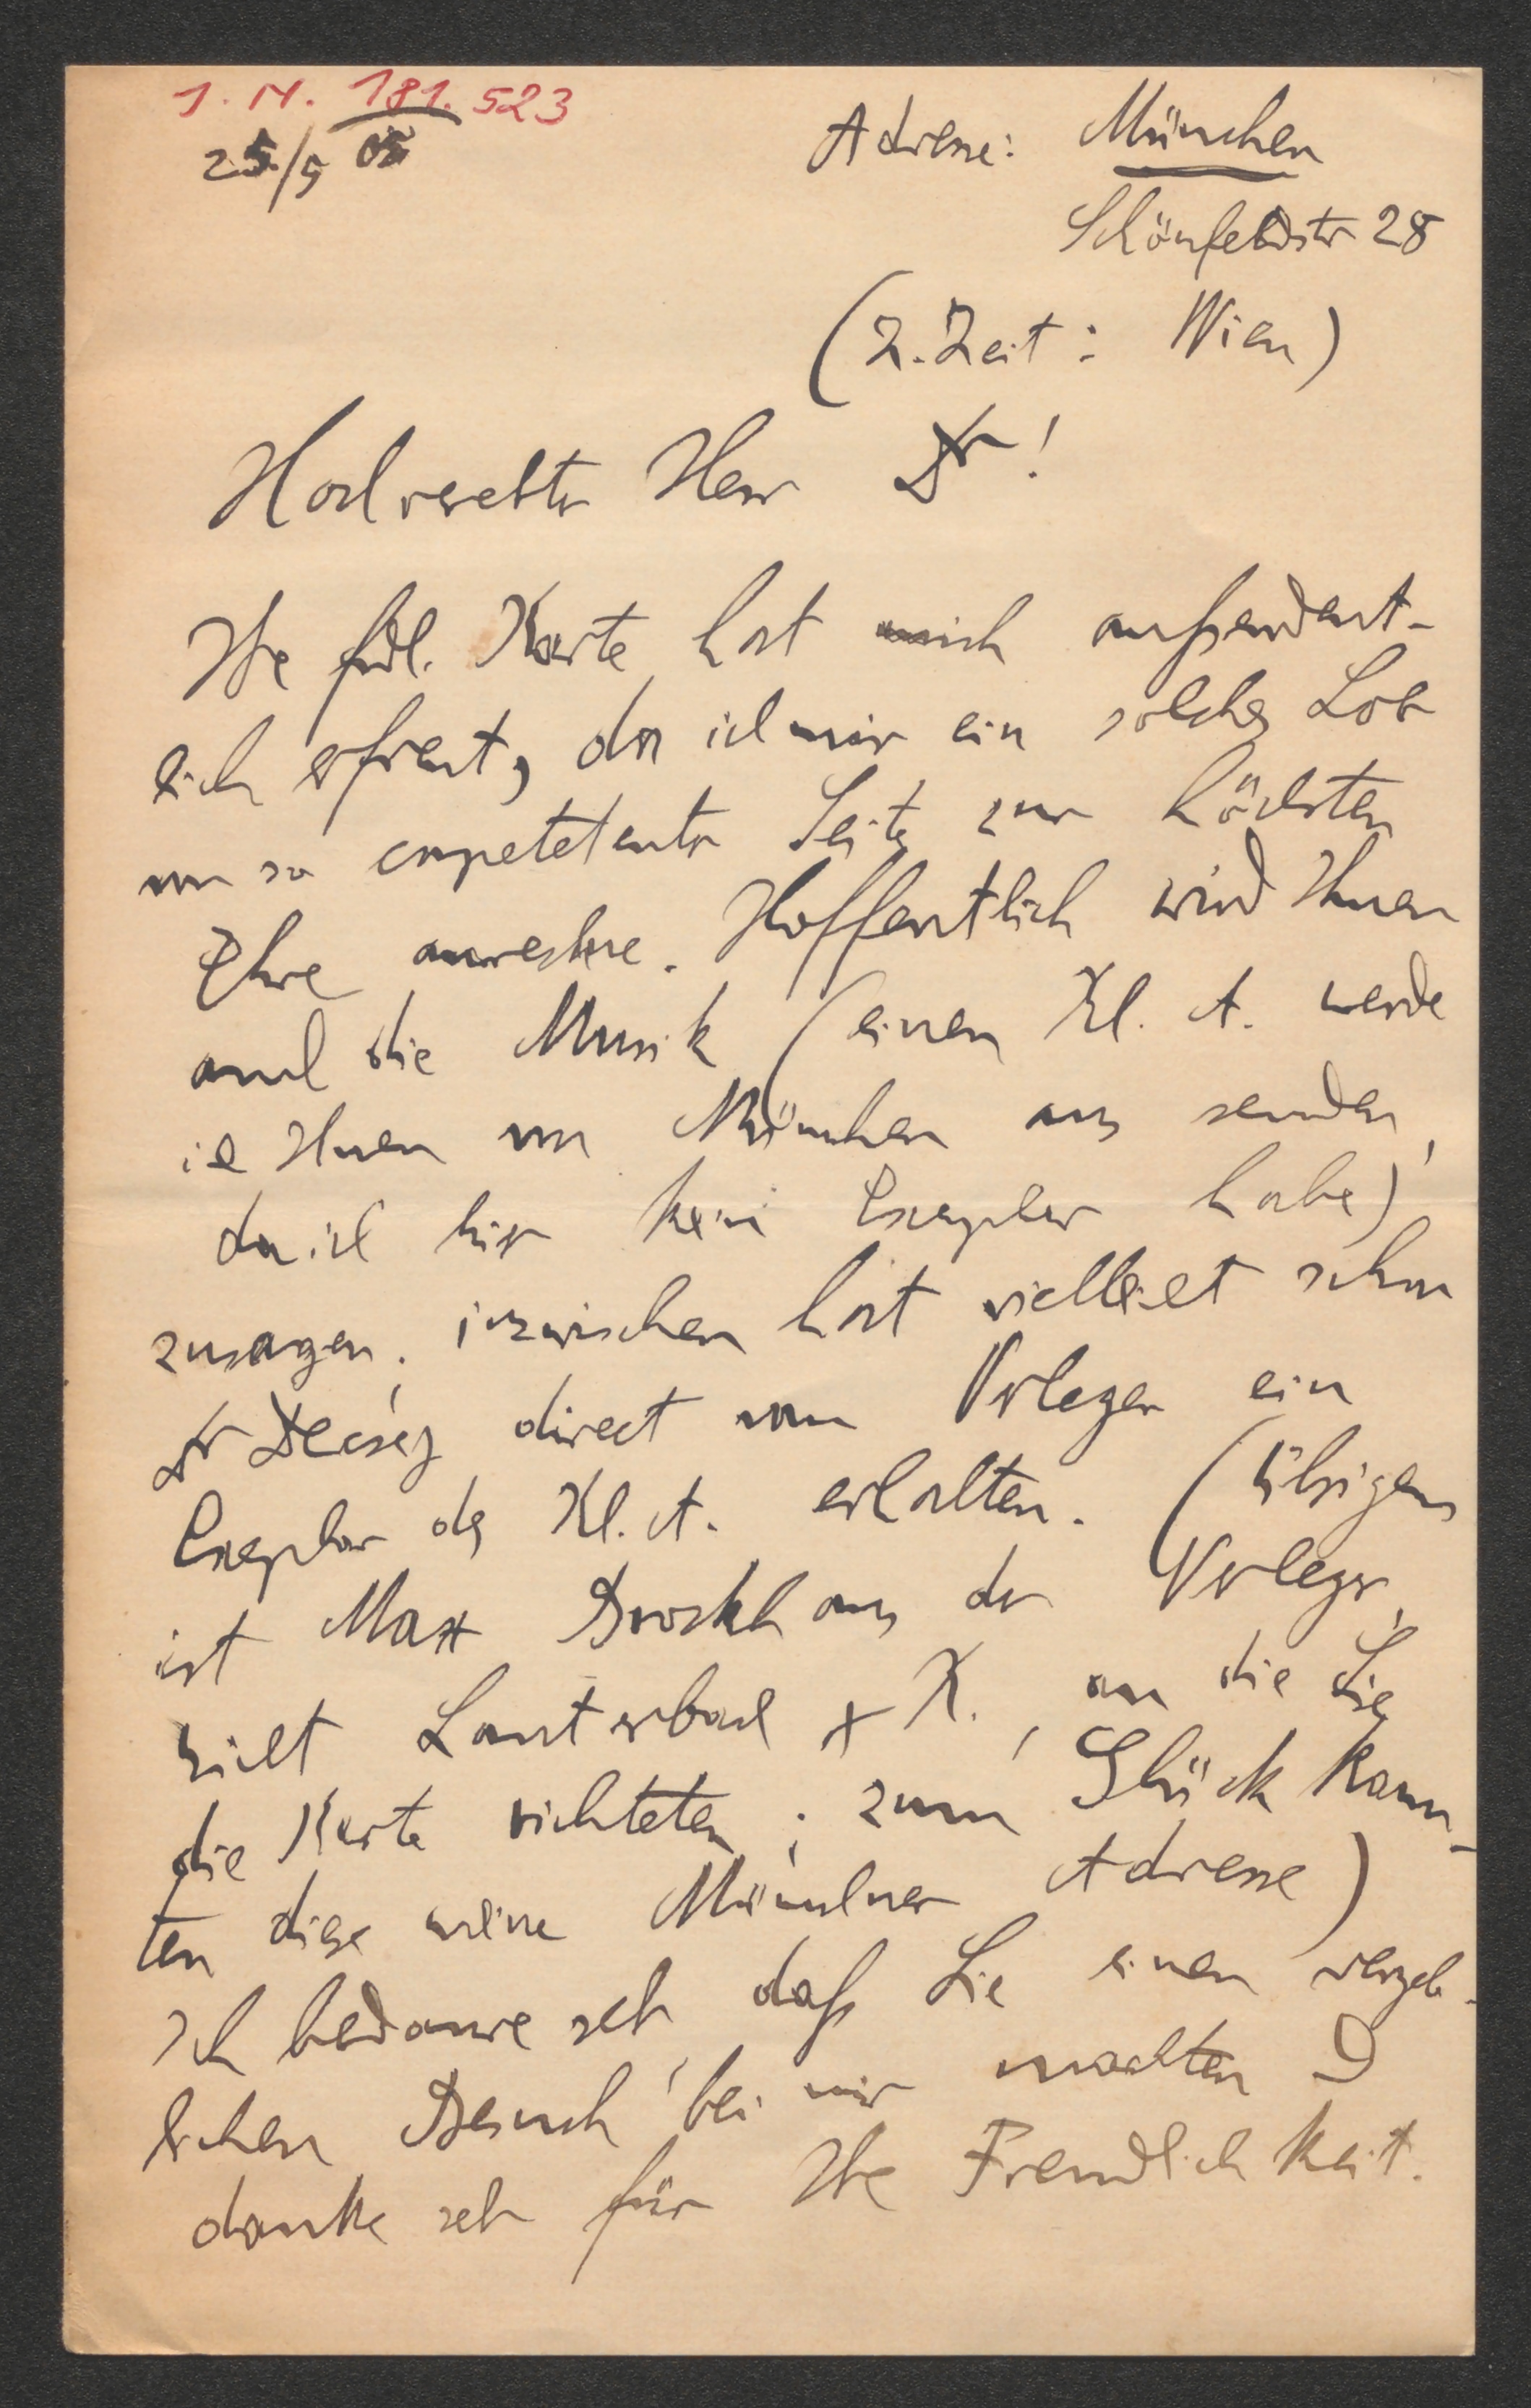 I. N. 181.523
25./9 05
Adresse: München
Schönfeldstr 28
(Z. Zeit: Wien)
Hochverehrter Herr Dr!
Ihre frdl. Karte hat mich außerordent-
lich erfreut, da ich mir ein solches Lob
von so competetenter Seite zur höchsten
Ehre anrechne. Hoffentlich wird Ihnen
auch die Musik (einen Kl. A. werde
ich Ihnen von München aus senden,
da ich hier kein Exemplar habe)
zusagen. inzwischen hat vielleicht schon
Dr Decsey direct vom Verleger ein
Exemplar des Kl. A. erhalten. (übrigens
ist Max Brockhaus der Verleger,
nicht Lauterbach + K., an die Sie
die Karte richteten; zum Glück kann-
ten diese meine Münchner Adresse)
Ich bedaure sehr, daß Sie einen vergeb-
lichen Besuch bei mir machten &
danke sehr für Ihre Freundlichkeit.